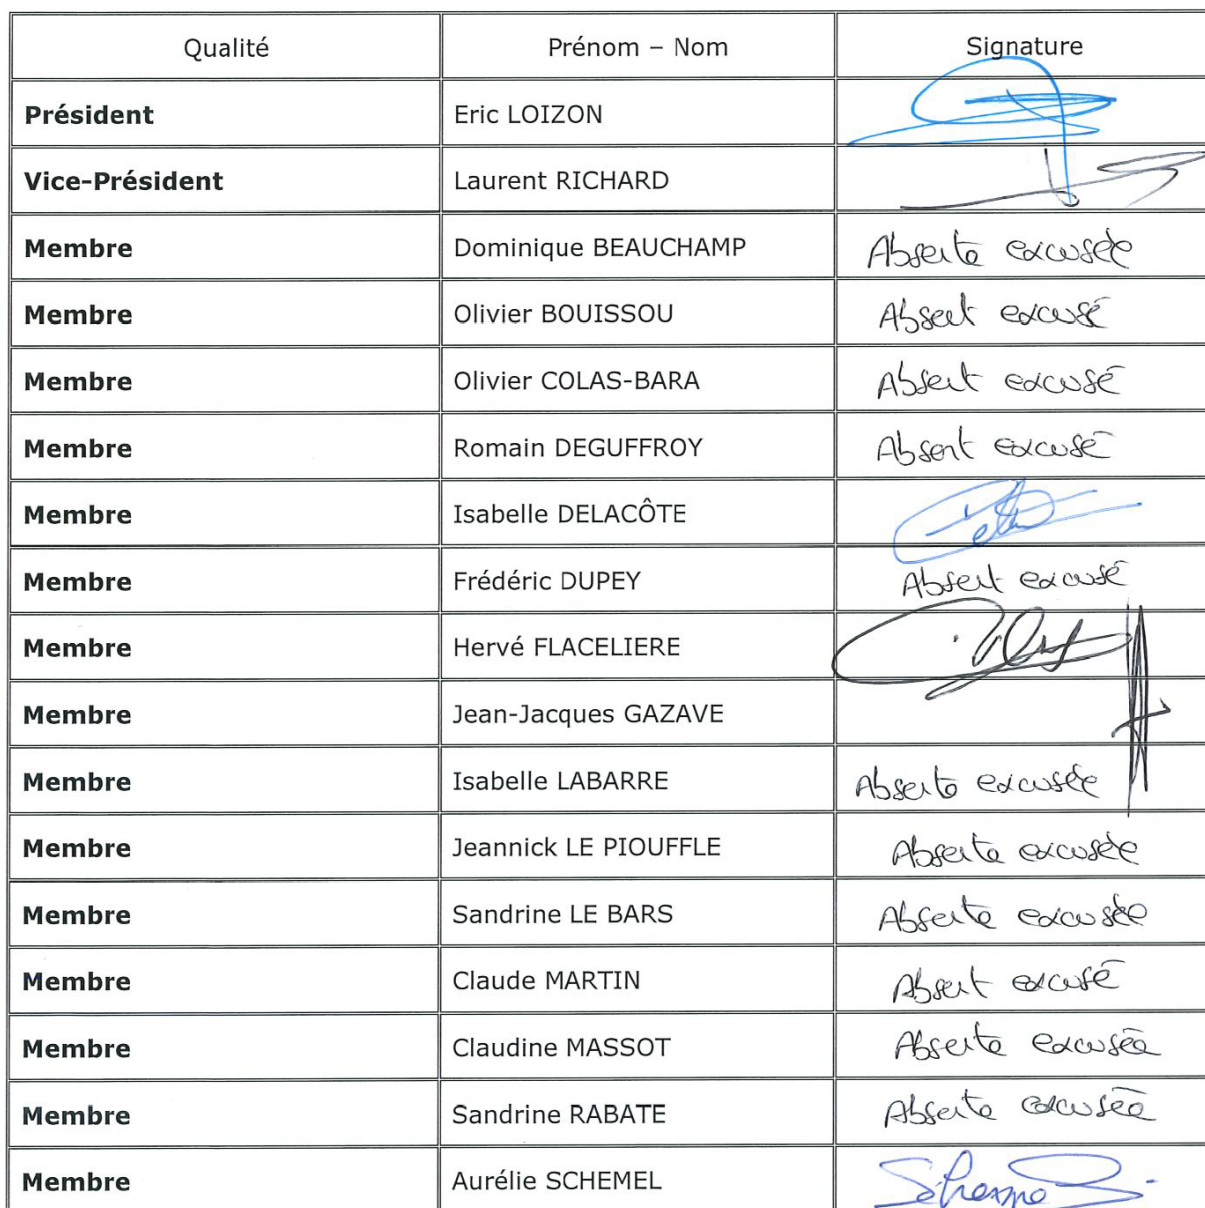 Qualité Prénom – Nom Signature
Président Eric LOIZON
Vice-Président Laurent RICHARD
Membre Dominique BEAUCHAMP Absente excusée
Membre Olivier BOUISSOU Absent excusé
Membre Olivier COLAS-BARA Absent excusé
Membre Romain DEGUFFROY Absent excusé
Membre Isabelle DELACÔTE
Membre Frédéric DUPEY Absent excusé
Membre Hervé FLACELIERE
Membre Jean-Jacques GAZAVE
Membre Isabelle LABARRE Absente excusée
Membre Jeannick LE PIOUFFLE Absente excusée
Membre Sandrine LE BARS Absente excusée
Membre Claude MARTIN Absent excusé
Membre Claudine MASSOT Absente excusée
Membre Sandrine RABATE Absente excusée
Membre Aurélie SCHEMEL